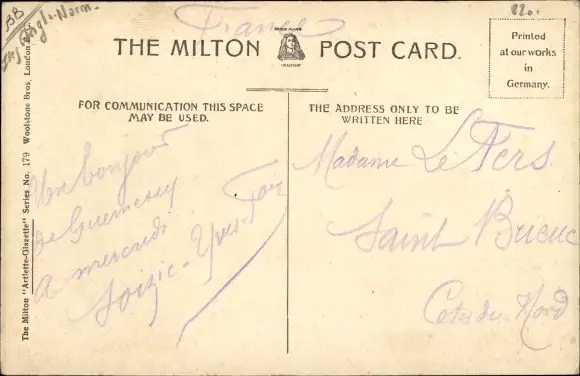 BB
Iles Anglo-Norm.
France
120.
THE MILTON POST CARD.
Printed
at our works
in
Germany.
FOR COMMUNICATION THIS SPACE
MAY BE USED.
THE ADDRESS ONLY TO BE
WRITTEN HERE
The Milton "Artlette-Glazette" Series No. 179 Woolstone Bros., London
Un bonjour
de Guernesey
A mercredi
Loizic - Yves -
Madame Le Fers
Saint Brieuc
Cotes du Nord